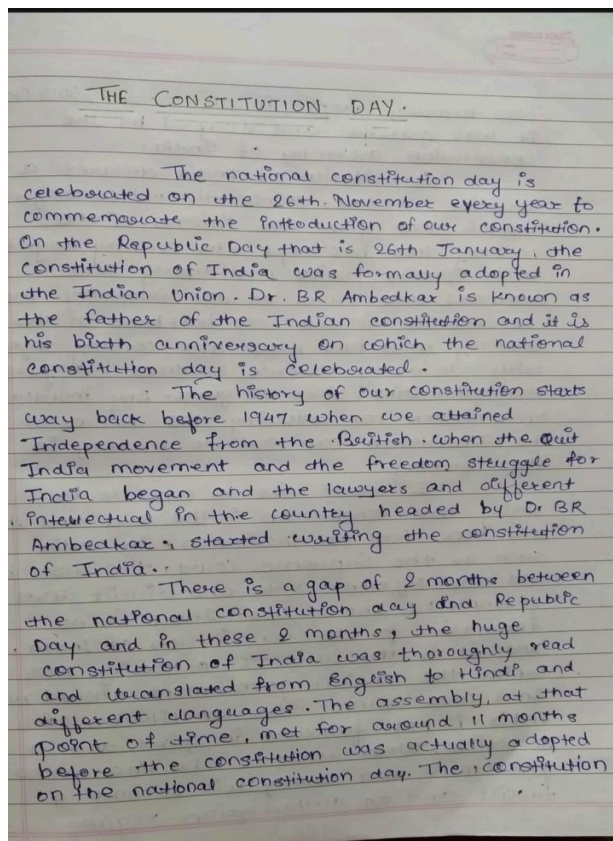 THE CONSTITUTION DAY.
The national constitution day is
celebrated on the 26th November every year to
commemorate the introduction of our constitution.
On the Republic Day that is 26th January, the
constitution of India was formally adopted in
the Indian Union. Dr. BR Ambedkar is known as
the father of the Indian constitution and it is
his birth anniversary on which the national
constitution day is celebrated.
The history of our constitution starts
way back before 1947 when we attained
Independence from the British. when the Quit
India movement and the freedom struggle for
India began and the lawyers and different
intellectual in the country headed by Dr BR
Ambedkar, started writing the constitution
of India.
There is a gap of 2 months between
the national constitution day and Republic
Day and in these 2 months, the huge
constitution of India was thoroughly read
and translated from English to Hindi and
different languages. The assembly, at that
point of time, met for around 11 months
before the constitution was actually adopted
on the national constitution day. The constitution